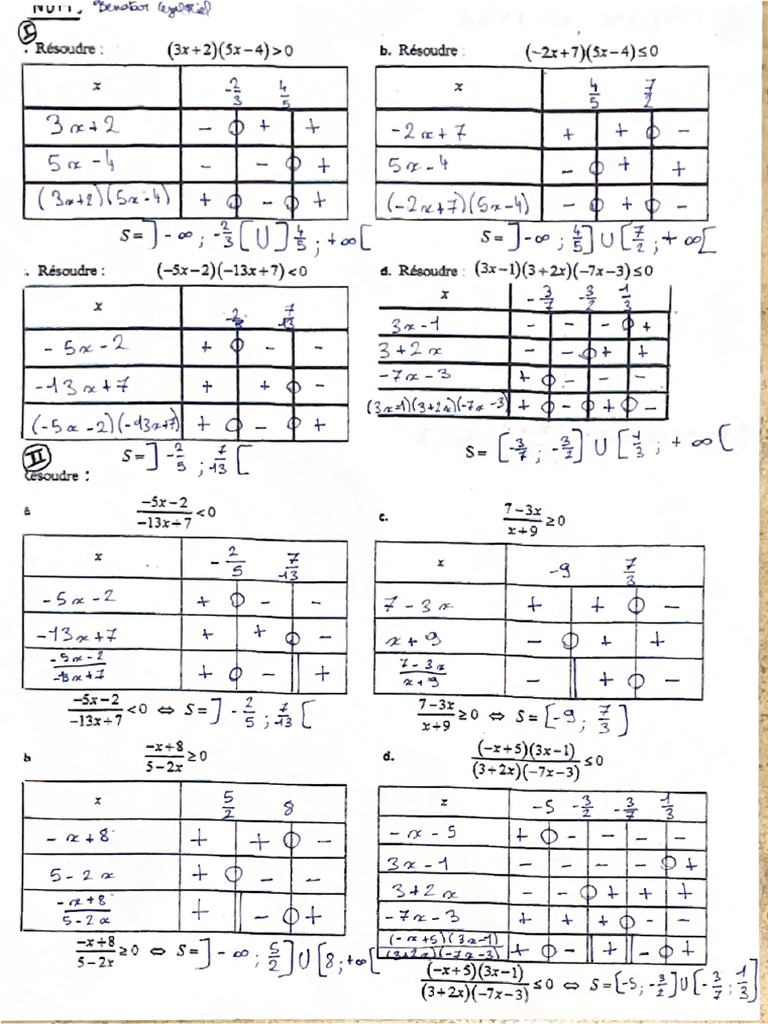 NOM:
I
. Résoudre : (3x+2)(5x−4)>0
x -2/3 4/5
3x+2 - 0 + +
5x-4 - - 0 +
(3x+2)(5x-4) + 0 - 0 +
S = ]-∞ ; -2/3[ U ]4/5 ; +∞[
b. Résoudre : (−2x+7)(5x−4)≤0
x 4/5 7/2
-2x+7 + + 0 -
5x-4 - 0 + +
(-2x+7)(5x-4) - 0 + 0 -
S = ]-∞ ; 4/5] U [7/2 ; +∞[
. Résoudre : (−5x−2)(−13x+7)<0
x 7/13
-5x-2 + 0 - -
-13x+7 + + 0 -
(-5x-2)(-13x+7) + 0 - 0 +
S = ]-2/5 ; 7/13[
d. Résoudre : (3x−1)(3+2x)(−7x−3)≤0
x -3/7 -3/2 1/3
3x-1 - - - 0 +
3+2x - - 0 + +
-7x-3 + 0 - - -
(3x-1)(3+2x)(-7x-3) + 0 - 0 + 0 -
S = [-3/7 ; -3/2] U [1/3 ; +∞[
II
Résoudre :
a (−5x−2)/(−13x+7) < 0
x -2/5 7/13
-5x-2 + 0 - -
-13x+7 + + 0 -
(-5x-2)/(-13x+7) + 0 - || +
(−5x−2)/(−13x+7) < 0 ⇔ S = ]-2/5 ; 7/13[
c. (7−3x)/(x+9) ≥ 0
x -9 7/3
7-3x + + 0 -
x+9 - 0 + +
(7-3x)/(x+9) - || + 0 -
(7−3x)/(x+9) ≥ 0 ⇔ S = [-9 ; 7/3]
b (−x+8)/(5−2x) ≥ 0
x 5/2 8
-x+8 + + 0 -
5-2x + 0 - -
(-x+8)/(5-2x) + || - 0 +
(−x+8)/(5−2x) ≥ 0 ⇔ S = ]-∞ ; 5/2] U [8 ; +∞[
d. (−x+5)(3x−1)/(3+2x)(−7x−3) ≤ 0
x -5 -3/2 -3/7 1/3
-x-5 + 0 - - - -
3x-1 - - - - 0 +
3+2x - - 0 + + +
-7x-3 + + + 0 - -
(-x+5)(3x-1)/(3+2x)(-7x-3) + 0 - || + || - 0 +
(−x+5)(3x−1)/(3+2x)(−7x−3) ≤ 0 ⇔ S = [-5 ; -3/2] U [-3/7 ; 1/3]